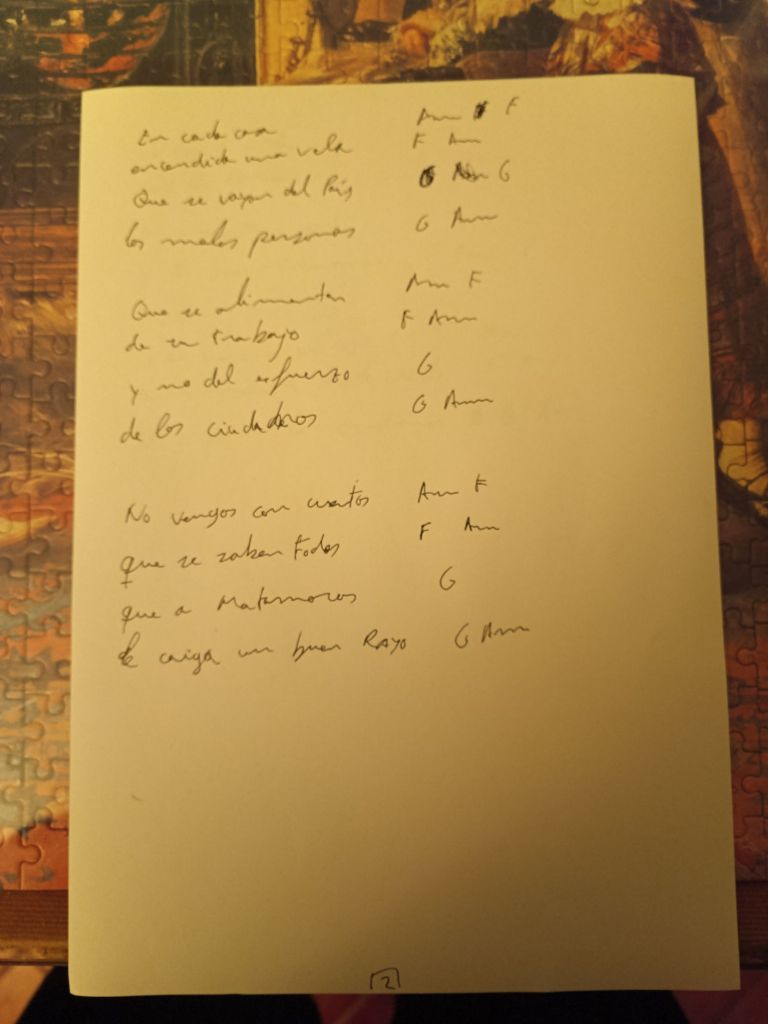 En cada casa Am F
encendida una vela F Am
Que se vayan del País G
las malas personas G Am
Que se alimentan Am F
de su trabajo F Am
y no del esfuerzo G
de los ciudadanos G Am
No vengas con cuentos Am F
que se saben todos F Am
que a Matamoros G
le caiga un buen RAYO G Am
2